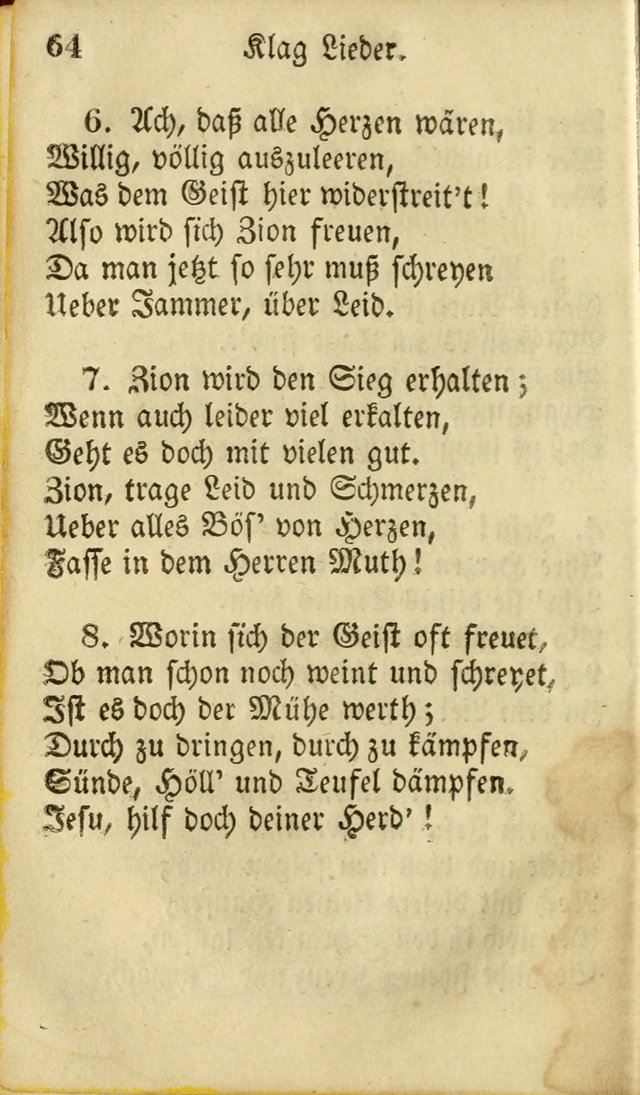 64 Klag Lieder.
6. Ach, daß alle Herzen wären,
Willig, völlig auszuleeren,
Was dem Geist hier widerstreit't!
Also wird sich Zion freuen,
Da man jetzt so sehr muß schreyen
Ueber Jammer, über Leid.
7. Zion wird den Sieg erhalten;
Wenn auch leider viel erkalten,
Geht es doch mit vielen gut.
Zion, trage Leid und Schmerzen,
Ueber alles Bös' von Herzen,
Fasse in dem Herren Muth!
8. Worin sich der Geist oft freuet,
Ob man schon noch weint und schreyet,
Ist es doch der Mühe werth;
Durch zu dringen, durch zu kämpfen,
Sünde, Höll' und Teufel dämpfen.
Jesu, hilf doch deiner Herd'!